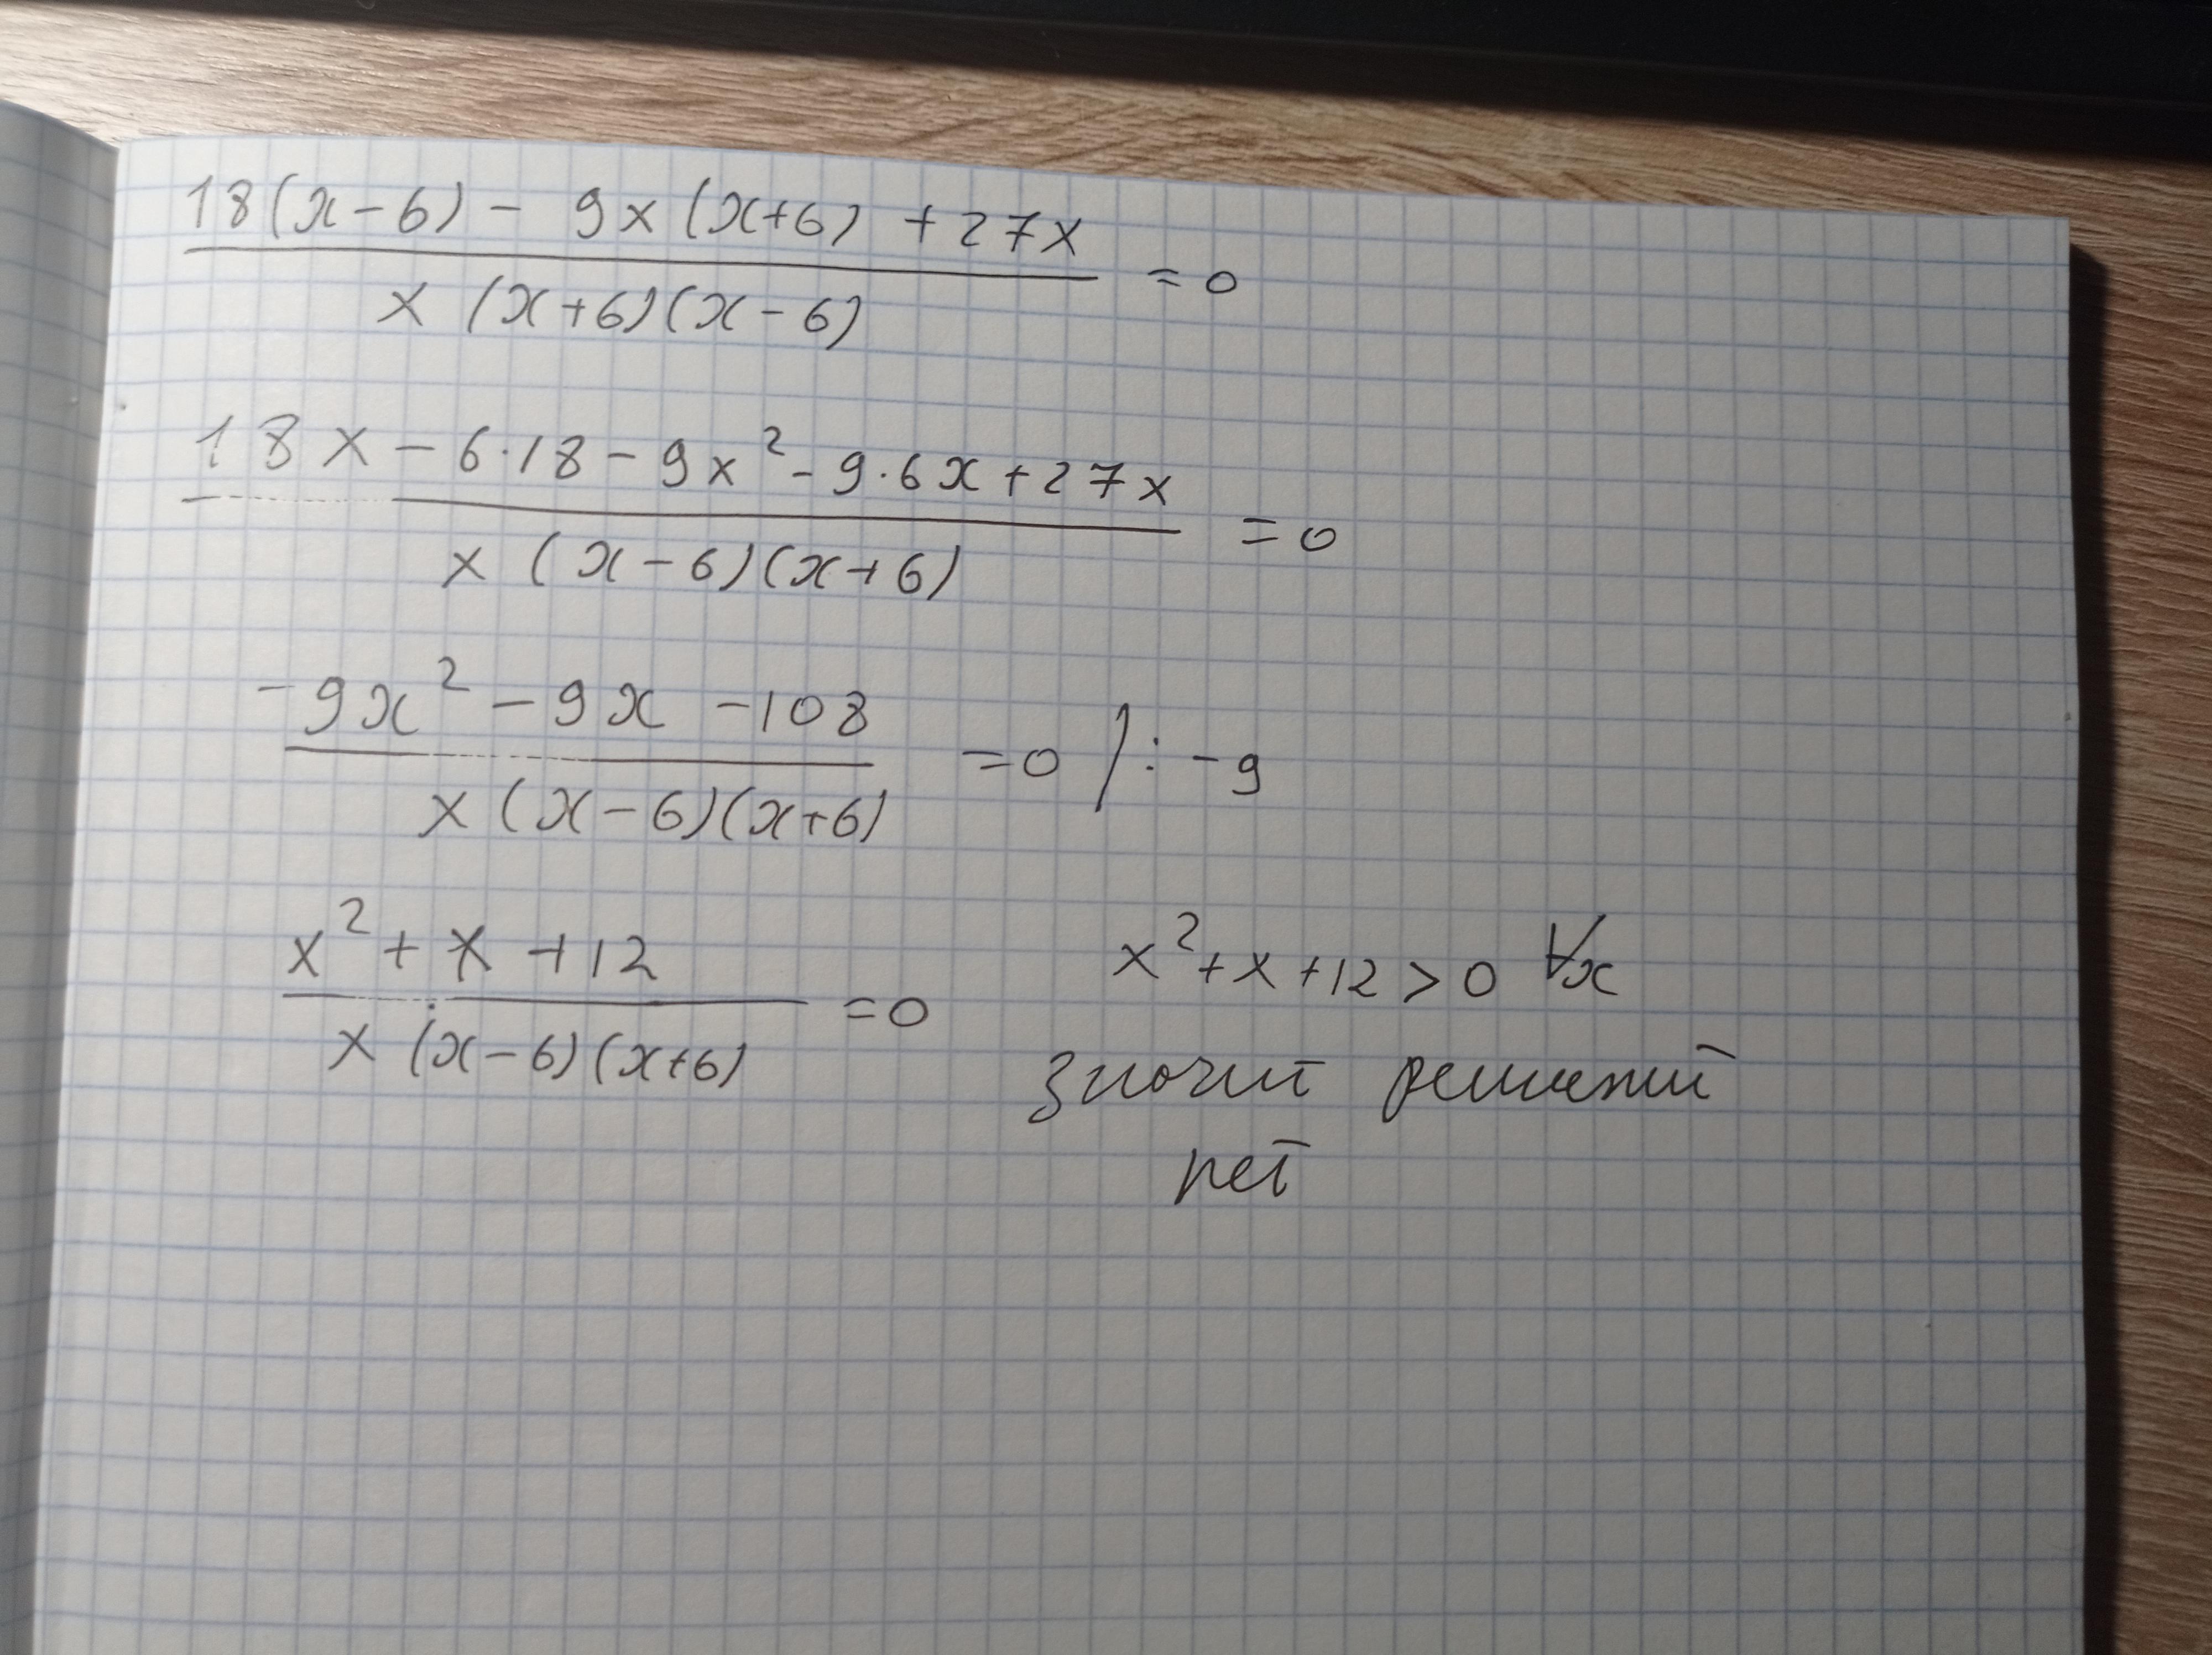 18(x-6) - 9x(x+6) +27x
x (x+6)(x-6)
=0
18x-6·18-9x²-9·6x+27x
x (x-6)(x+6)
=0
-9x²-9x-108
x(x-6)(x+6)
=0 /: -9
x²+x+12
x (x-6)(x+6)
=0
x²+x+12>0 ∀x
значит решений
нет